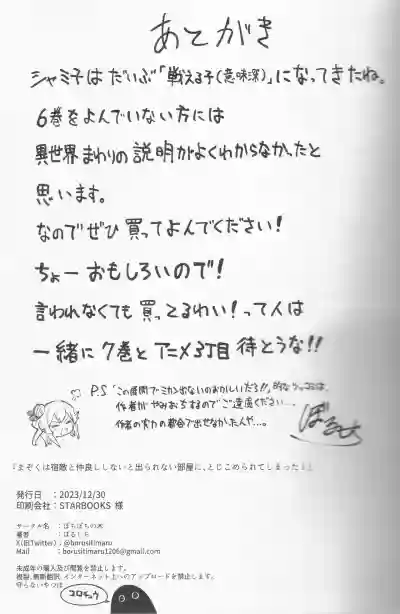 あとがき
シャミ子はだいぶ「戦える子(意味深)」になってきたね。
6巻をよんでいない方には
異世界まわりの説明がよくわからなかったと
思います。
なのでぜひ買ってよんでください!
ちょーおもしろいので!
言われなくても買ってるわい!って人は
一緒に7巻とアニメ3丁目待とうな!!
P.S「この展開でミカン出ないのおかしいだろ!!」的なツッコミは、
作者がやみおちするのでご遠慮ください…。
作者の実力の都合で出せなかたんや…。
ぼるしち
『まぞくは宿敵と仲良ししないと出られない部屋に、とじこめられてしまった!』
発行日 :2023/12/30
印刷会社:STARBOOKS 様
サークル名 :ぼちぼちの木
著者 :ぼるしち
X(旧Twitter):@borusitimaru
Mail :borusitimaru1206@gmail.com
未成年の購入及び閲覧を禁止します。
複製、無断翻訳、インターネット上へのアップロードを禁止します。
守らないやつは
コロチュウ